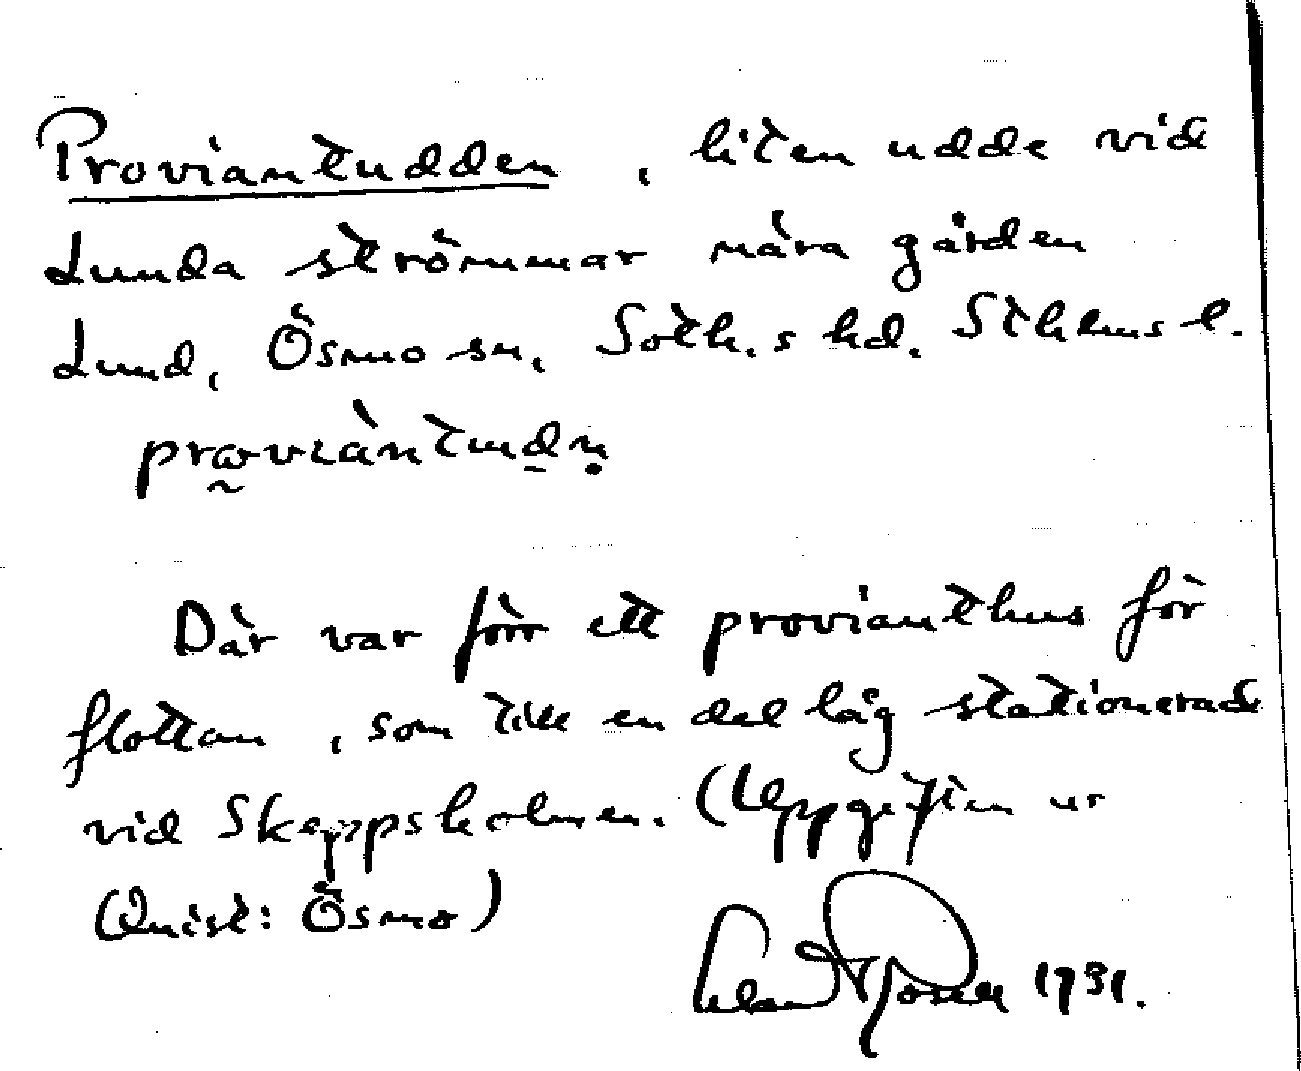 Proviantudden, liten udde vid
Lunda strömmar nära gården
Lund, Ösmo sn, Soth.s hd. Sthlms l.
Där var förr ett provianthus för
flottan, som till en del låg stationerade
vid Skeppsholmen. (Uppgiften ur
Quist: Ösmo)
1931.